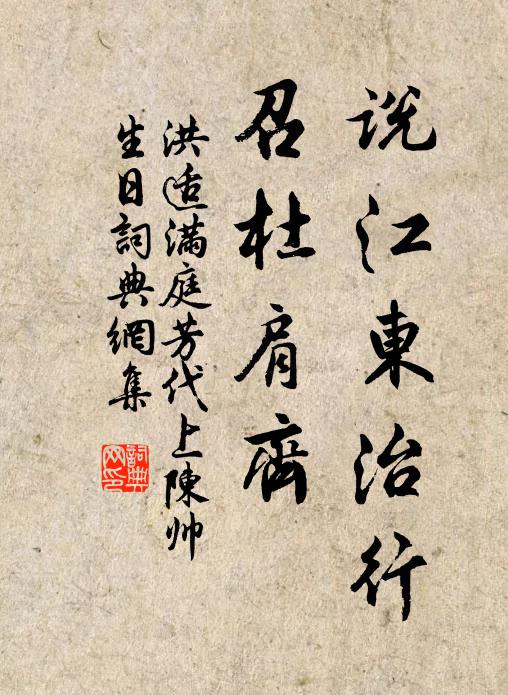 説江東治行
召杜肩齊
洪适滿庭芳代上陳帅
生日詞典網集
詞典
网印